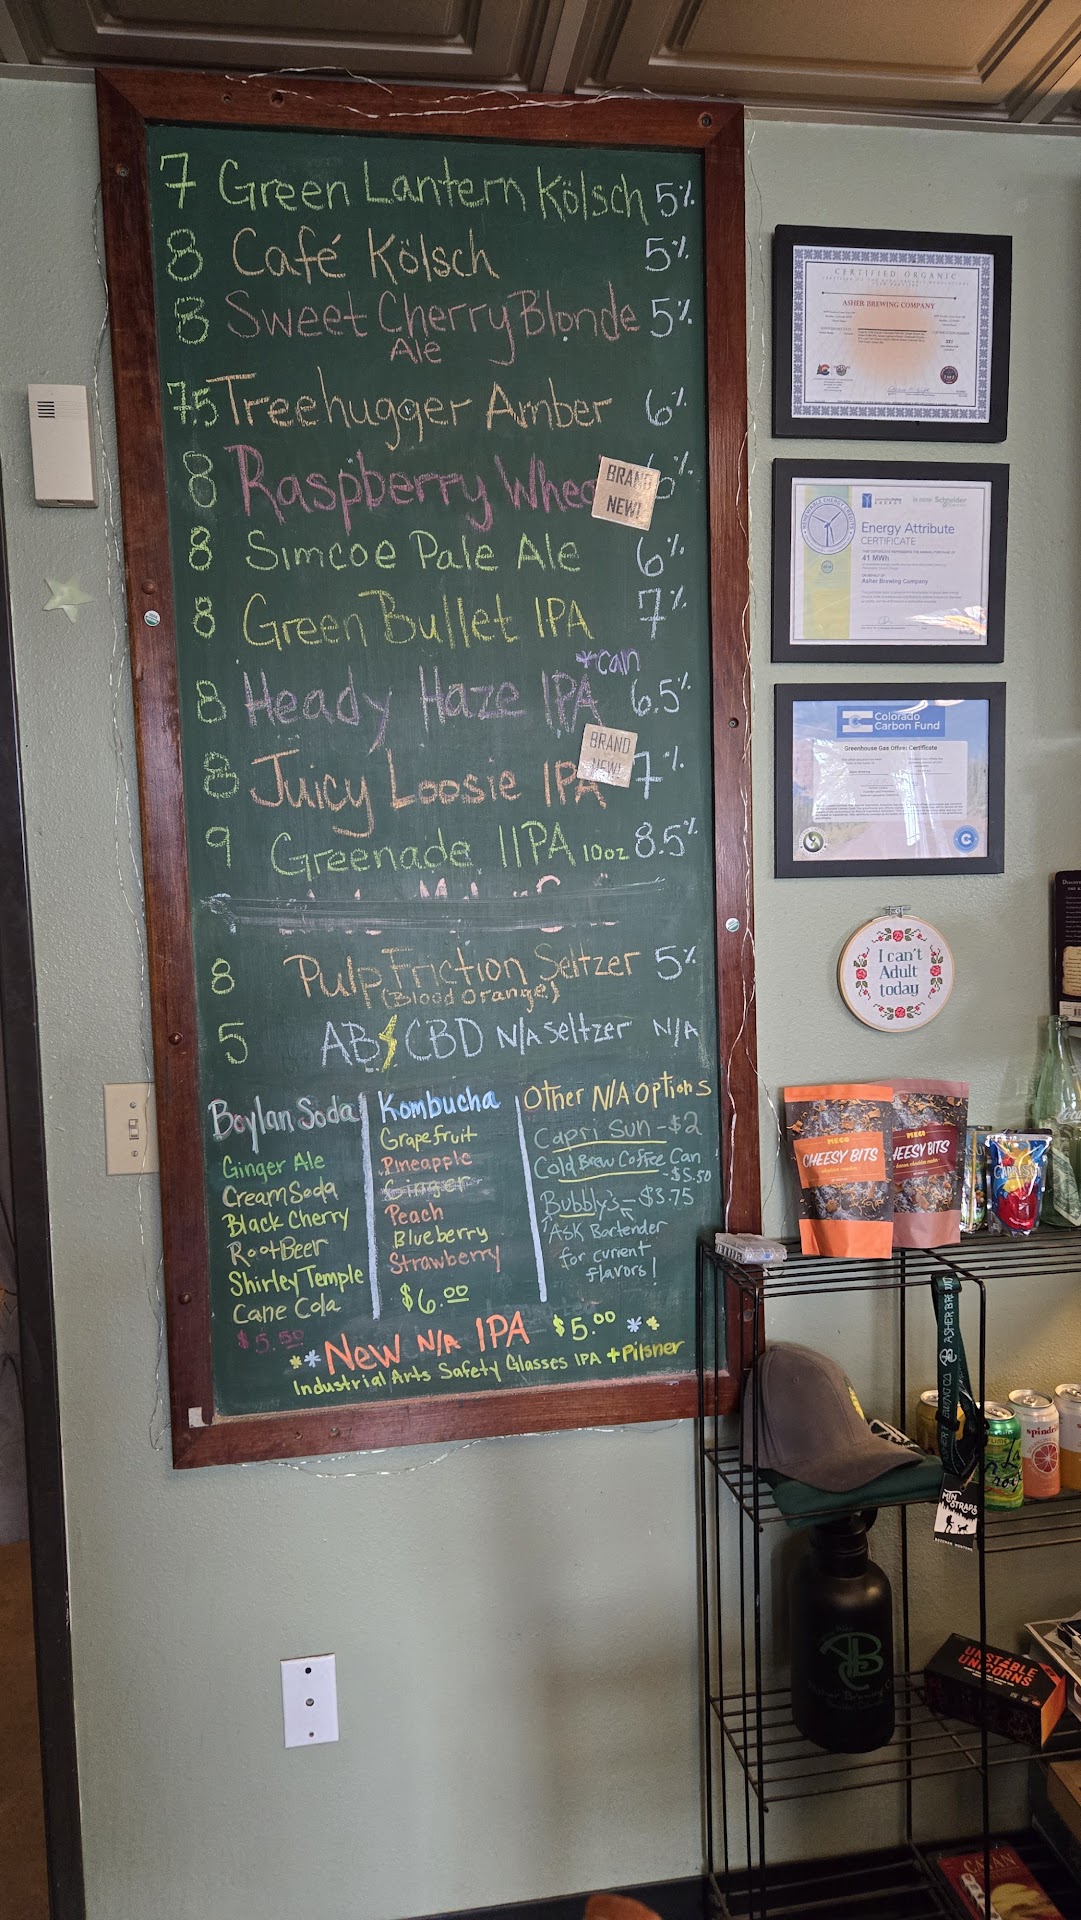 7 Green Lantern Kölsch 5%
8 Café Kölsch 5%
8 Sweet Cherry Blonde 5%
Ale
7.5 Treehugger Amber 6%
8 Raspberry Whea 6%
BRAND
NEW!
8 Simcoe Pale Ale 6%
8 Green Bullet IPA 7%
*can
8 Heady Haze IPA 6.5%
BRAND
NEW!
8 Juicy Loosie IPA 7%
9 Greenade IIPA 10oz 8.5%
8 Pulp Friction Seltzer 5%
(Blood Orange)
5 AB⚡CBD N/A Seltzer N/A
Boylan Soda
Ginger Ale
Cream Soda
Black Cherry
Root Beer
Shirley Temple
Cane Cola
$5.50
Kombucha
Grapefruit
Pineapple
Ginger
Peach
Blueberry
Strawberry
$6.00
Other N/A Options
Capri Sun - $2
Cold Brew Coffee Can
- $5.50
Bubbly's - $3.75
Ask Bartender
for current
flavors!
**New N/A IPA $5.00 **
Industrial Arts Safety Glasses IPA + Pilsner
CERTIFIED ORGANIC
ASHER BREWING COMPANY
Schneider
Energy Attribute
CERTIFICATE
41 MWh
Asher Brewing Company
Colorado
Carbon Fund
Greenhouse Gas Offset Certificate
I can't
Adult
today
MECO
CHEESY BITS
MECO
HEESY BITS
CAPRI SUN
ASHER BREW
MTN
STRAPS
spindri
La
Asher Brewing Co
UNSTABLE
UNICORNS
CATAN